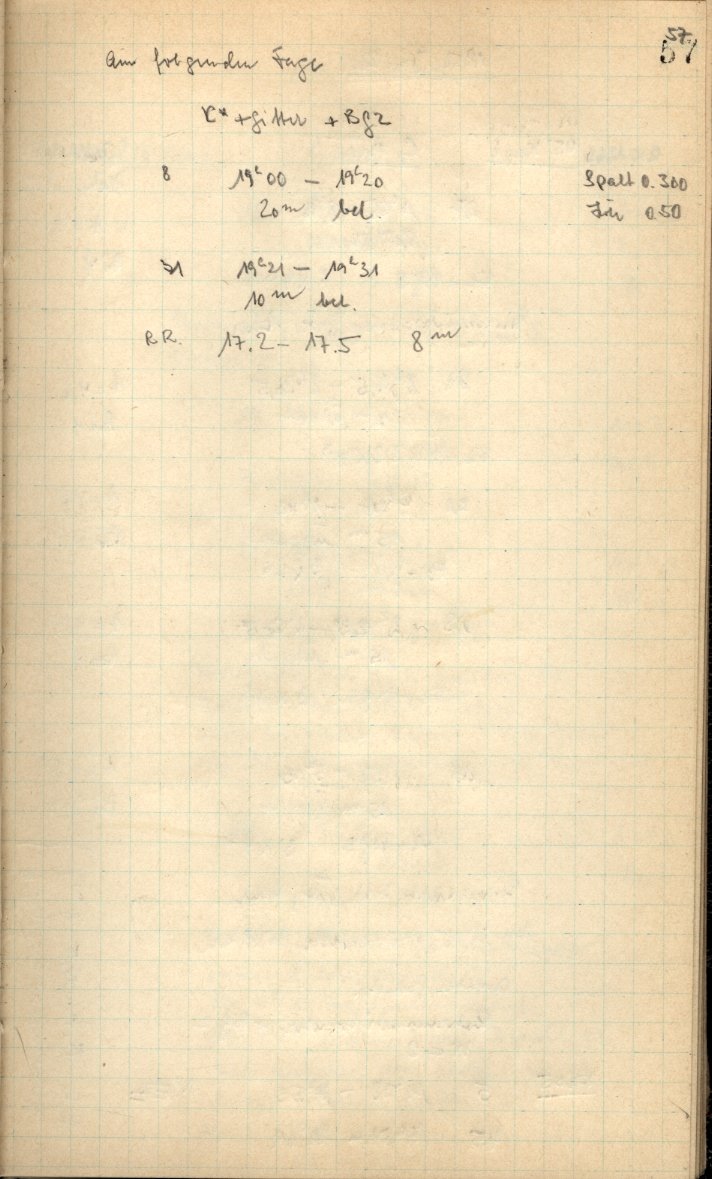 57.
57
Am folgenden Tage
K* + Gitter + BG2
8 19h00 – 19h20 Spalt 0.300
20m bel. 0.50
19h21 – 19h31
10m bel.
RR. 17.2 – 17.5 8m